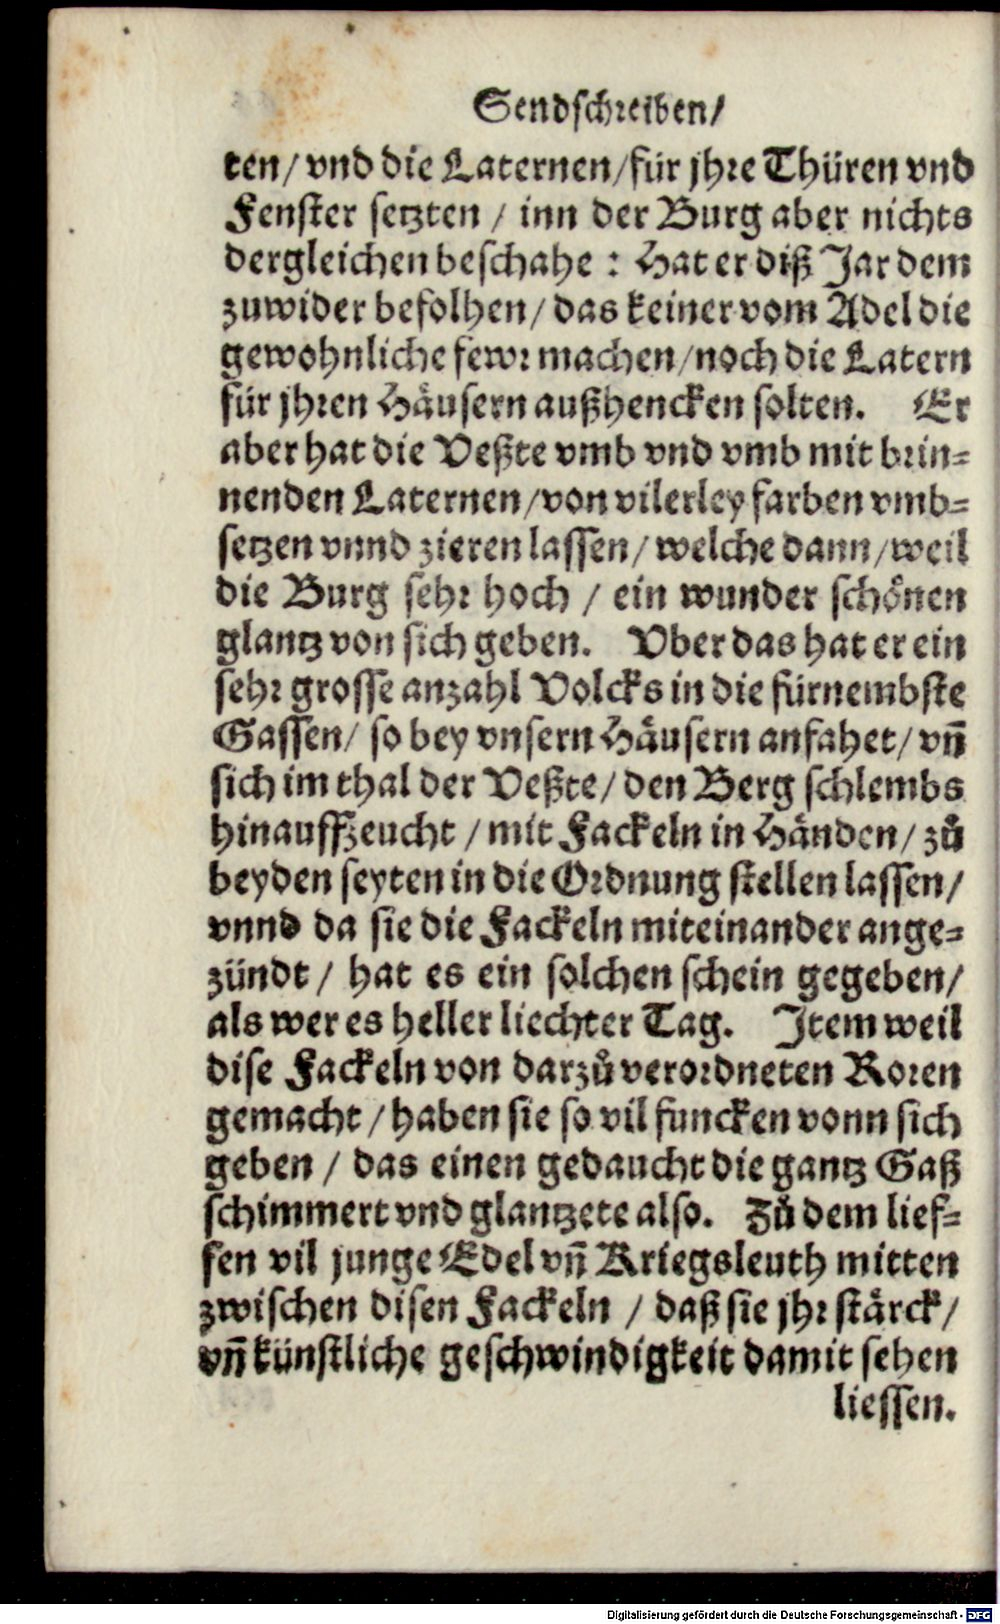 Sendschreiben/
ten/ vnd die Laternen/für jhre Thüren vnd
Fenster setzten / inn der Burg aber nichts
dergleichen beschahe : Hat er diß Jar dem
zuwider befolhen/ das keiner vom Adel die
gewohnliche fewr machen/noch die Latern
für jhren Häusern außhencken solten. Er
aber hat die Veßte vmb vnd vmb mit brin⸗
nenden Laternen/von vilerley farben vmb⸗
setzen vnnd zieren lassen/ welche dann/weil
die Burg sehr hoch / ein wunder schönen
glantz von sich geben. Vber das hat er ein
sehr grosse anzahl Volcks in die fürnembste
Gassen/ so bey vnsern Häusern anfahet/ vn̄
sich im thal der Veßte/ den Berg schlembs
hinauffzeucht / mit Fackeln in Händen/ zů
beyden seyten in die Ordnung stellen lassen/
vnnd da sie die Fackeln miteinander ange⸗
zündt / hat es ein solchen schein gegeben/
als wer es heller liechter Tag. Item weil
dise Fackeln von darzů verordneten Roren
gemacht / haben sie so vil funcken vonn sich
geben / das einen gedaucht die gantz Gaß
schimmert vnd glantzete also. Zů dem lief⸗
fen vil junge Edel vn̄ Kriegsleuth mitten
zwischen disen Fackeln / daß sie jhr stärck/
vn̄ künstliche geschwindigkeit damit sehen
liessen.
Digitalisierung gefördert durch die Deutsche Forschungsgemeinschaft - DFG